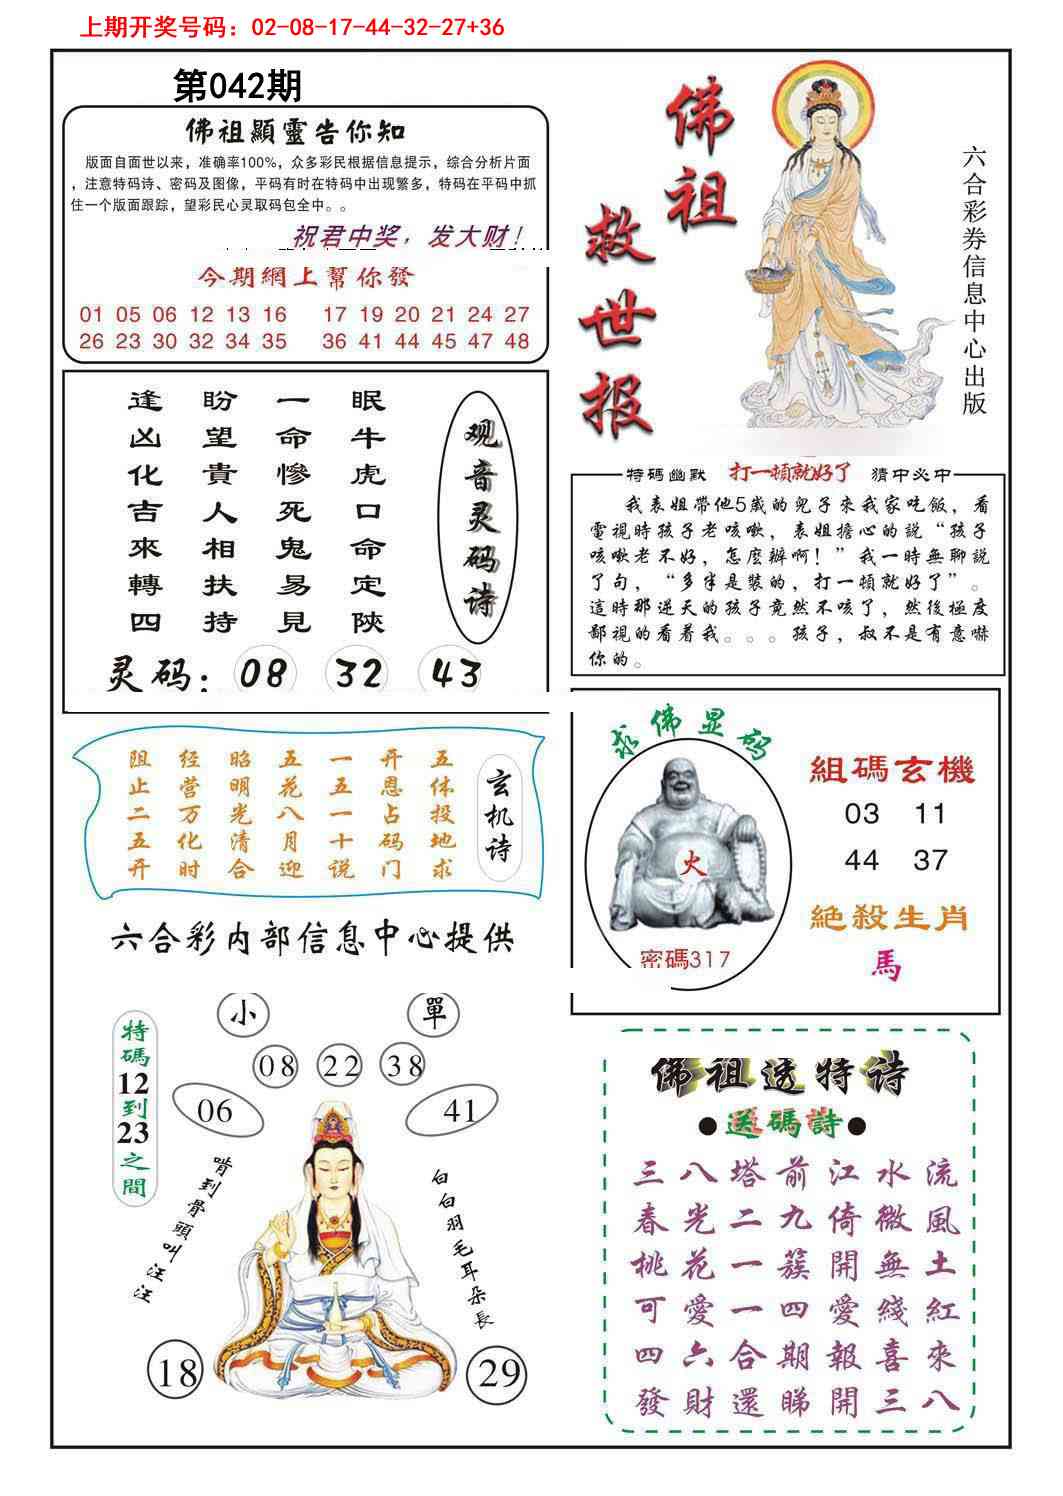 上期开奖号码：02-08-17-44-32-27+36
第042期
佛祖顯靈告你知
版面自面世以来，准确率100%，众多彩民根据信息提示，综合分析片面
，注意特码诗、密码及图像，平码有时在特码中出现繁多，特码在平码中抓
住一个版面跟踪，望彩民心灵取码包全中。。
祝君中奖，发大财！
今期網上幫你發
01 05 06 12 13 16 17 19 20 21 24 27
26 23 30 32 34 35 36 41 44 45 47 48
佛祖
救世报
六合彩券信息中心出版
观音灵码诗
眠牛虎口命定陝
一命慘死鬼易見
盼望貴人相扶持
逢凶化吉來轉四
灵码：08 32 43
特碼幽默 打一頓就好了 猜中必中
我表姐帶他5歲的兒子來我家吃飯，看
電視時孩子老咳嗽，表姐擔心的說“孩子
咳嗽老不好，怎麼辦啊！”我一時無聊説
了句，“多半是裝的，打一頓就好了”。
這時那逆天的孩子竟然不咳了，然後極度
鄙視的看着我。。。孩子，叔不是有意嚇
你的。
玄机诗
五体投地求
开恩占码门
一五一十说
五花八月迎
昭明光清合
经营万化时
阻止二五开
求佛显码
火
密碼317
組碼玄機
03 11
44 37
絶殺生肖
馬
六合彩内部信息中心提供
小 單
08 22 38
06 41
特碼12到23之間
啃到骨頭叫汪汪
白白羽毛耳朵長
18 29
佛祖透特诗
●送碼詩●
三八塔前江水流
春光二九倚微風
桃花一簇開無土
可愛一四愛綫紅
四六合期報喜來
發財還睇開三八